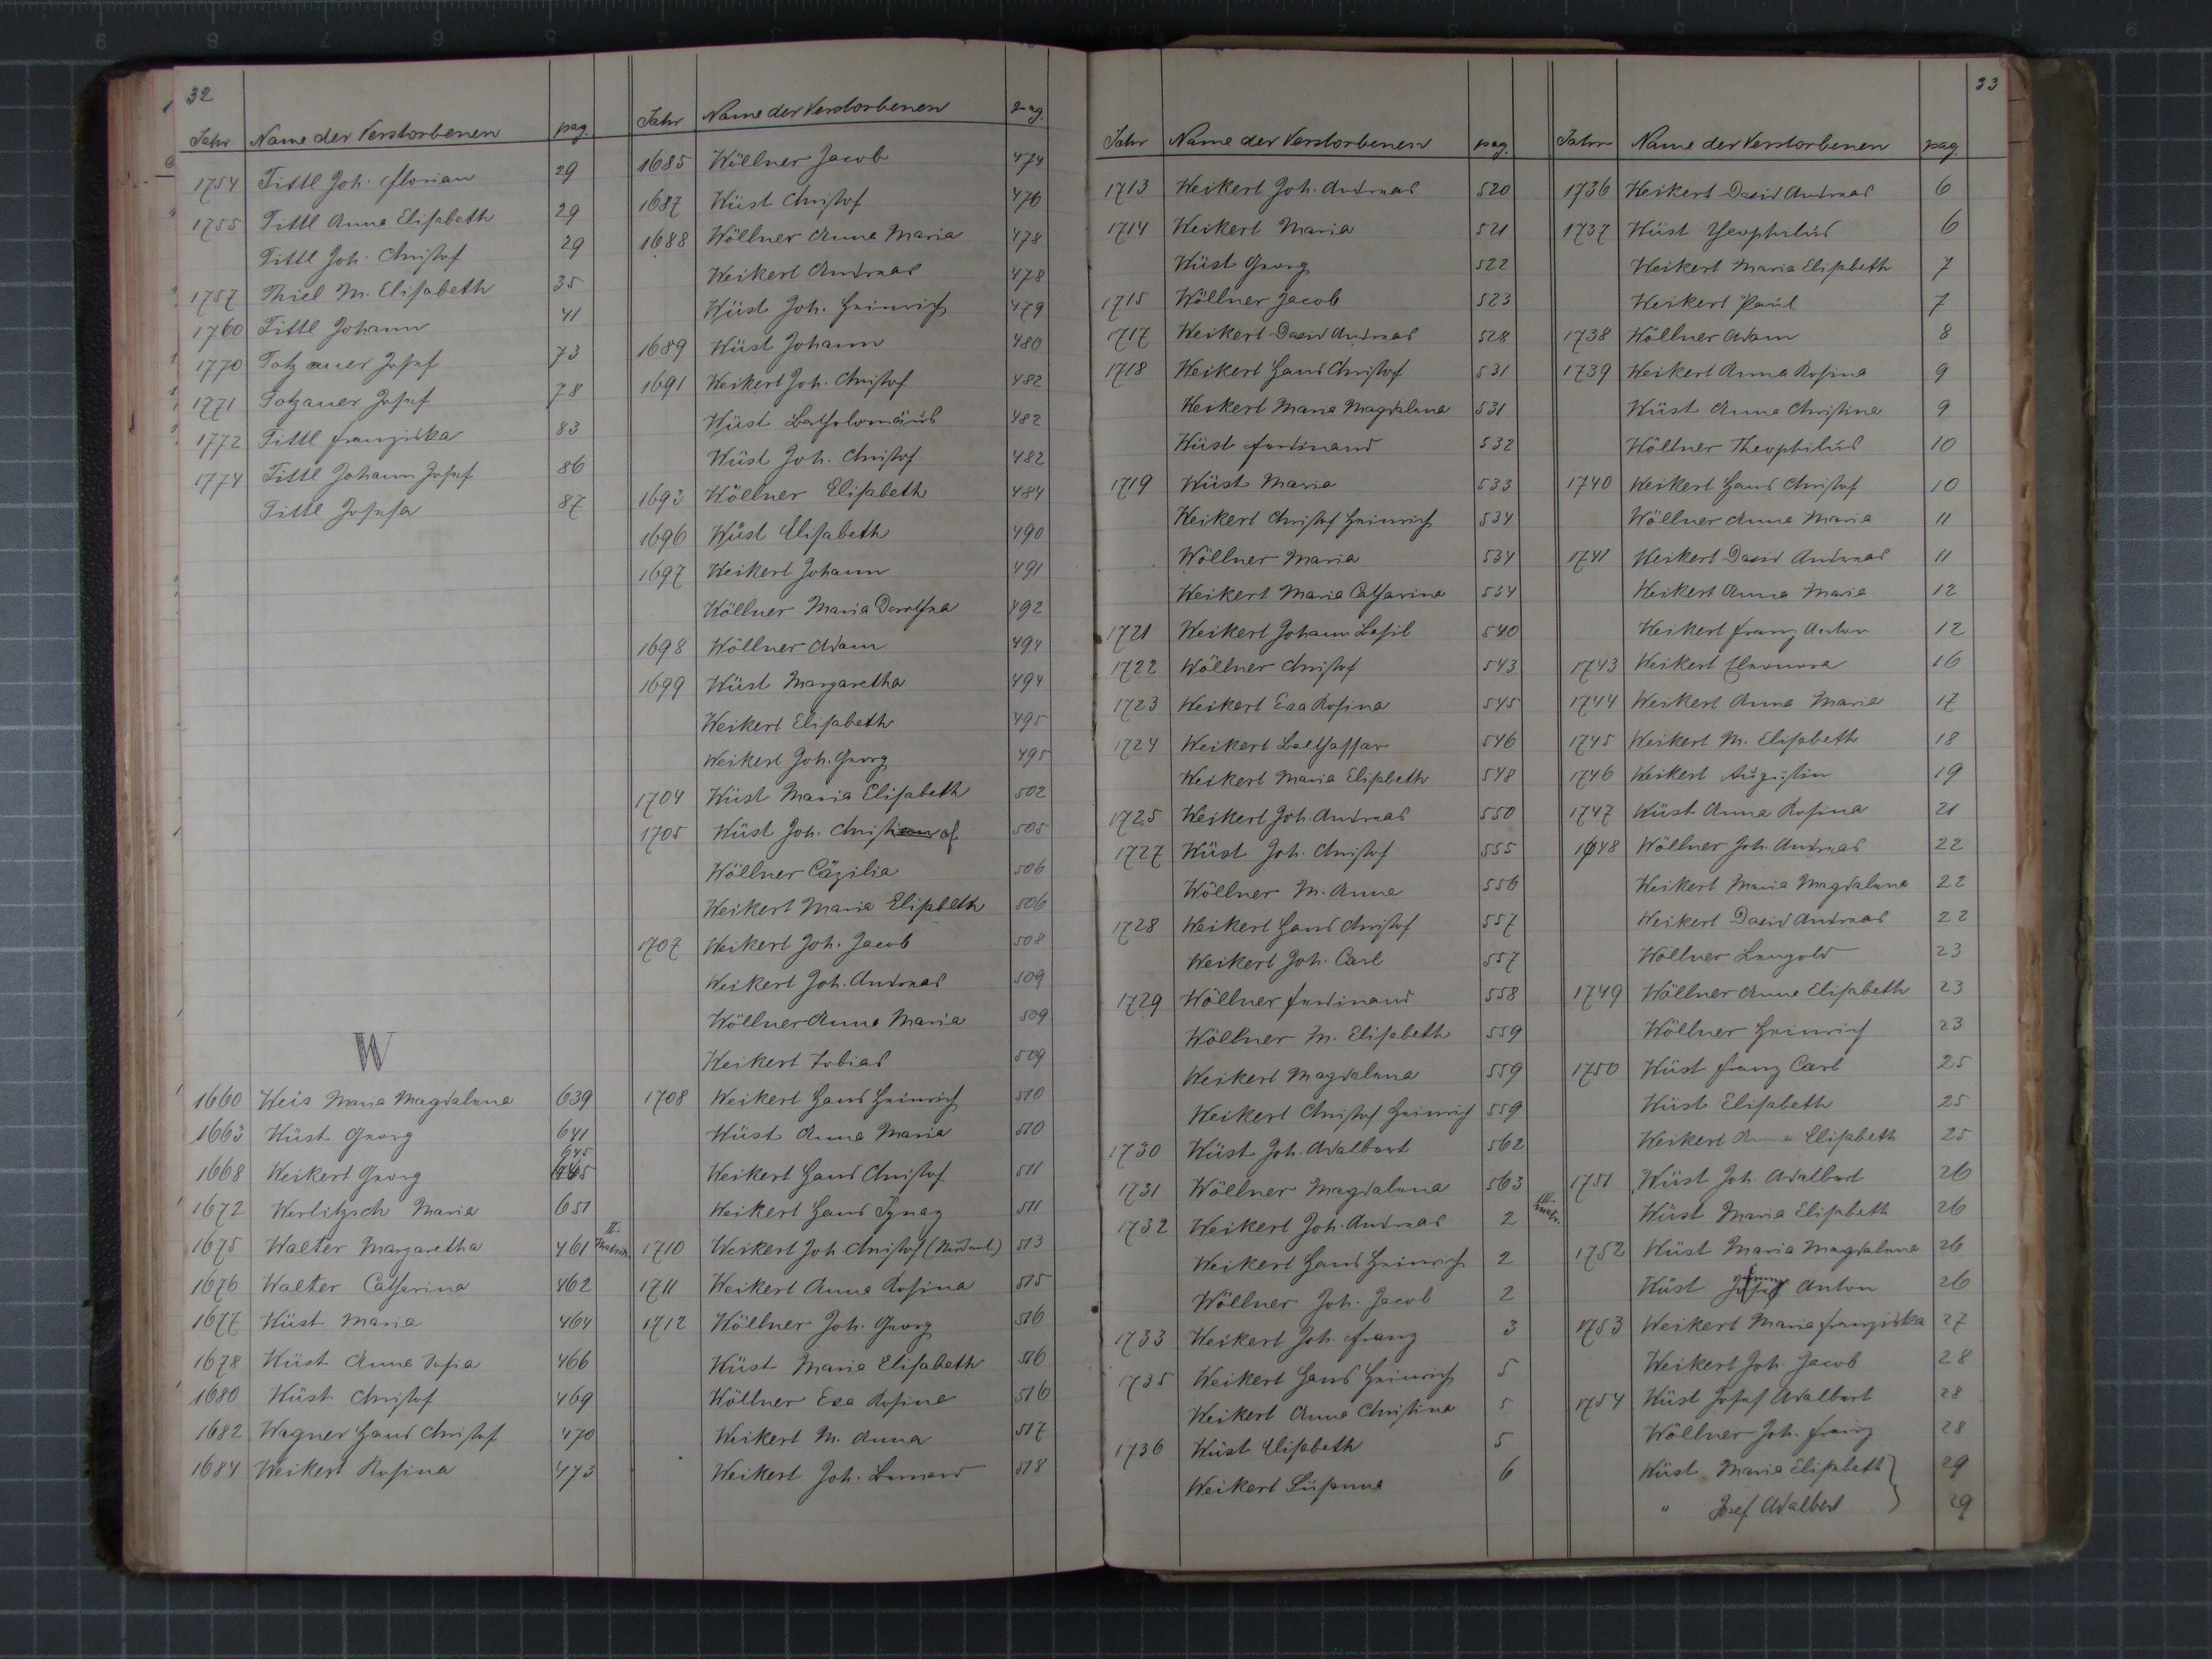 32
Jahr Name der Verstorbenen pag.
1754 Tittl Joh. Florian 29
1755 Tittl Anna Elisabeth 29
Tittl Joh. Christof 29
1757 Thiel M. Elisabeth 35
1760 Tittl Johann 41
1770 Totzauer Josef 73
1771 Totzauer Josef 78
1772 Tittl Franziska 83
1774 Tittl Johann Josef 86
Tittl Josefa 87
W
1660 Weis Maria Magdalena 639
1663 Wüst Georg 641
1668 Weikert Georg 645
1672 Werlitzsch Maria 651
1675 Walter Margaretha 461 II. Matrik.
1676 Walter Catharina 462
1677 Wüst Maria 464
1678 Wüst Anna Sofia 466
1680 Wüst Christof 469
1682 Wagner Hans Christof 470
1684 Weikert Rosina 473
Jahr Name der Verstorbenen pag.
1685 Wöllner Jacob 474
1687 Wüst Christof 476
1688 Wöllner Anna Maria 478
Weikert Andreas 478
Wüst Joh. Heinrich 479
1689 Wüst Johann 480
1691 Weikert Joh. Christof 482
Wüst Bartholomäus 482
Wüst Joh. Christof 482
1693 Wöllner Elisabeth 484
1696 Wüst Elisabeth 490
1697 Weikert Johann 491
Wöllner Maria Dorothea 492
1698 Wöllner Adam 494
1699 Wüst Margaretha 494
Weikert Elisabeth 495
Weikert Joh. Georg 495
1704 Wüst Maria Elisabeth 502
1705 Wüst Joh. Christof 505
Wöllner Cäzilia 506
Weikert Maria Elisabeth 506
1707 Weikert Joh. Jacob 508
Weikert Joh. Andreas 509
Wöllner Anna Maria 509
Weikert Tobias 509
1708 Weikert Hans Heinrich 510
Wüst Anna Maria 510
Weikert Hans Christof 511
Weikert Hans Ignaz 511
1710 Weikert Joh Christof 513
1711 Weikert Anna Rosina 515
1712 Wöllner Joh. Georg 516
Wüst Maria Elisabeth 516
Wöllner Eva Rosina 516
Weikert M. Anna 517
Weikert Joh. Bernard 518
Jahr Name der Verstorbenen pag.
1713 Weikert Joh. Andreas 520
1714 Weikert Maria 521
Wüst Georg 522
1715 Wöllner Jacob 523
1717 Weikert David Andreas 528
1718 Weikert Hans Christof 531
Weikert Maria Magdalena 531
Wüst Ferdinand 532
1719 Wüst Maria 533
Weikert Christof Heinrich 534
Wöllner Maria 534
Weikert Maria Catharina 534
1721 Weikert Johann Basil 540
1722 Wöllner Christof 543
1723 Weikert Eva Rosina 545
1724 Weikert Balthassar 546
Weikert Maria Elisabeth 548
1725 Weikert Joh. Andreas 550
1727 Wüst Joh. Christof 555
Wöllner M. Anna 556
1728 Weikert Hans Christof 557
Weikert Joh. Carl 557
1729 Wöllner Ferdinand 558
Wöllner M. Elisabeth 559
Weikert Magdalena 559
Weikert Christof Heinrich 559
1730 Wüst Joh. Adalbert 562
1731 Wöllner Magdalena 563
1732 Weikert Joh. Andreas 2 III. Matr.
Weikert Hans Heinrich 2
Wöllner Joh. Jacob 2
1733 Weikert Joh. Franz 3
1735 Weikert Hans Heinrich 5
Weikert Anna Christina 5
1736 Wüst Elisabeth 5
Weikert Susanna 6
33
Jahr Name der Verstorbenen pag.
1736 Weikert David Andreas 6
1737 Wüst Theophilus 6
Weikert Maria Elisabeth 7
Weikert Paul 7
1738 Wöllner Adam 8
1739 Weikert Anna Rosina 9
Wüst Anna Christina 9
Wöllner Theophilus 10
1740 Weikert Hans Christof 10
Wöllner Anna Maria 11
1741 Weikert David Andreas 11
Weikert Anna Maria 12
Weikert Franz Anton 12
1743 Weikert Eleonora 16
1744 Weikert Anna Maria 17
1745 Weikert M. Elisabeth 18
1746 Weikert Augustin 19
1747 Wüst Anna Rosina 21
1748 Wöllner Joh. Andreas 22
Weikert Maria Magdalena 22
Weikert David Andreas 22
Wöllner Leupold 23
1749 Wöllner Anna Elisabeth 23
Wöllner Heinrich 23
1750 Wüst Franz Carl 25
Wüst Elisabeth 25
Weikert Anna Elisabeth 25
1751 Wüst Joh. Adalbert 26
Wüst Maria Elisabeth 26
1752 Wüst Maria Magdalena 26
Wüst Franz Anton 26
1753 Weikert Maria Franziska 27
Weikert Joh. Jacob 28
1754 Wüst Josef Adalbert 28
Wöllner Joh. Franz 28
Wüst Maria Elisabeth } 29
" Josef Adalbert 29